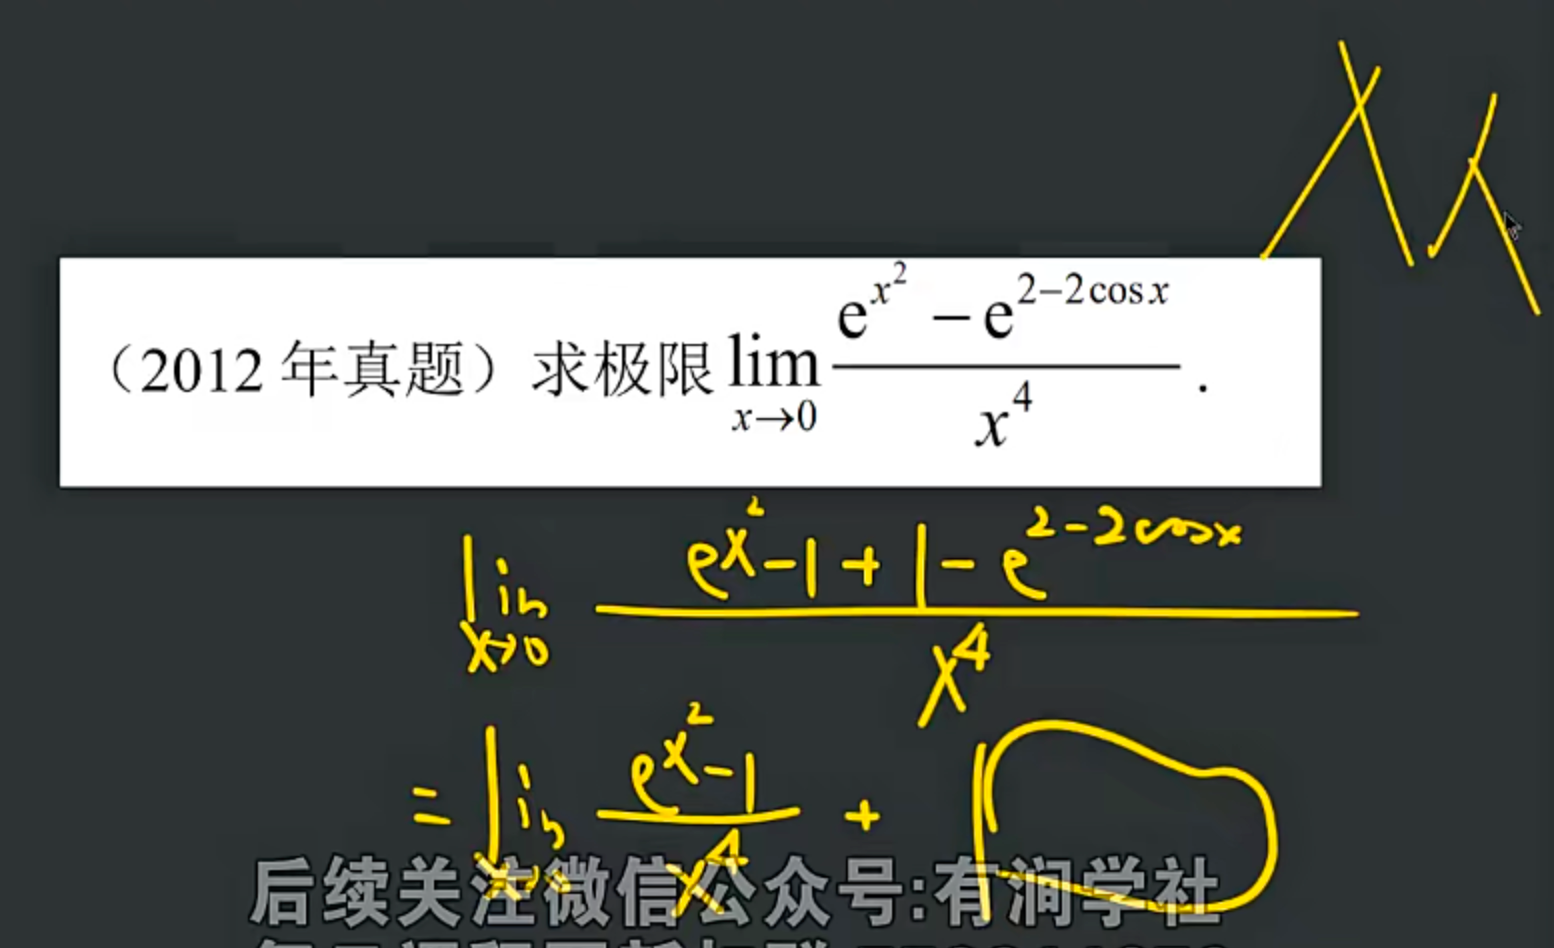 （2012 年真题）求极限 lim_{x→0} (e^{x^2} − e^{2−2cos x}) / x^4 .
lim_{x→0} (e^{x^2} - 1 + 1 - e^{2-2cosx}) / x^4
= lim_{x→0} (e^{x^2} - 1) / x^4 +
后续关注微信公众号:有涧学社